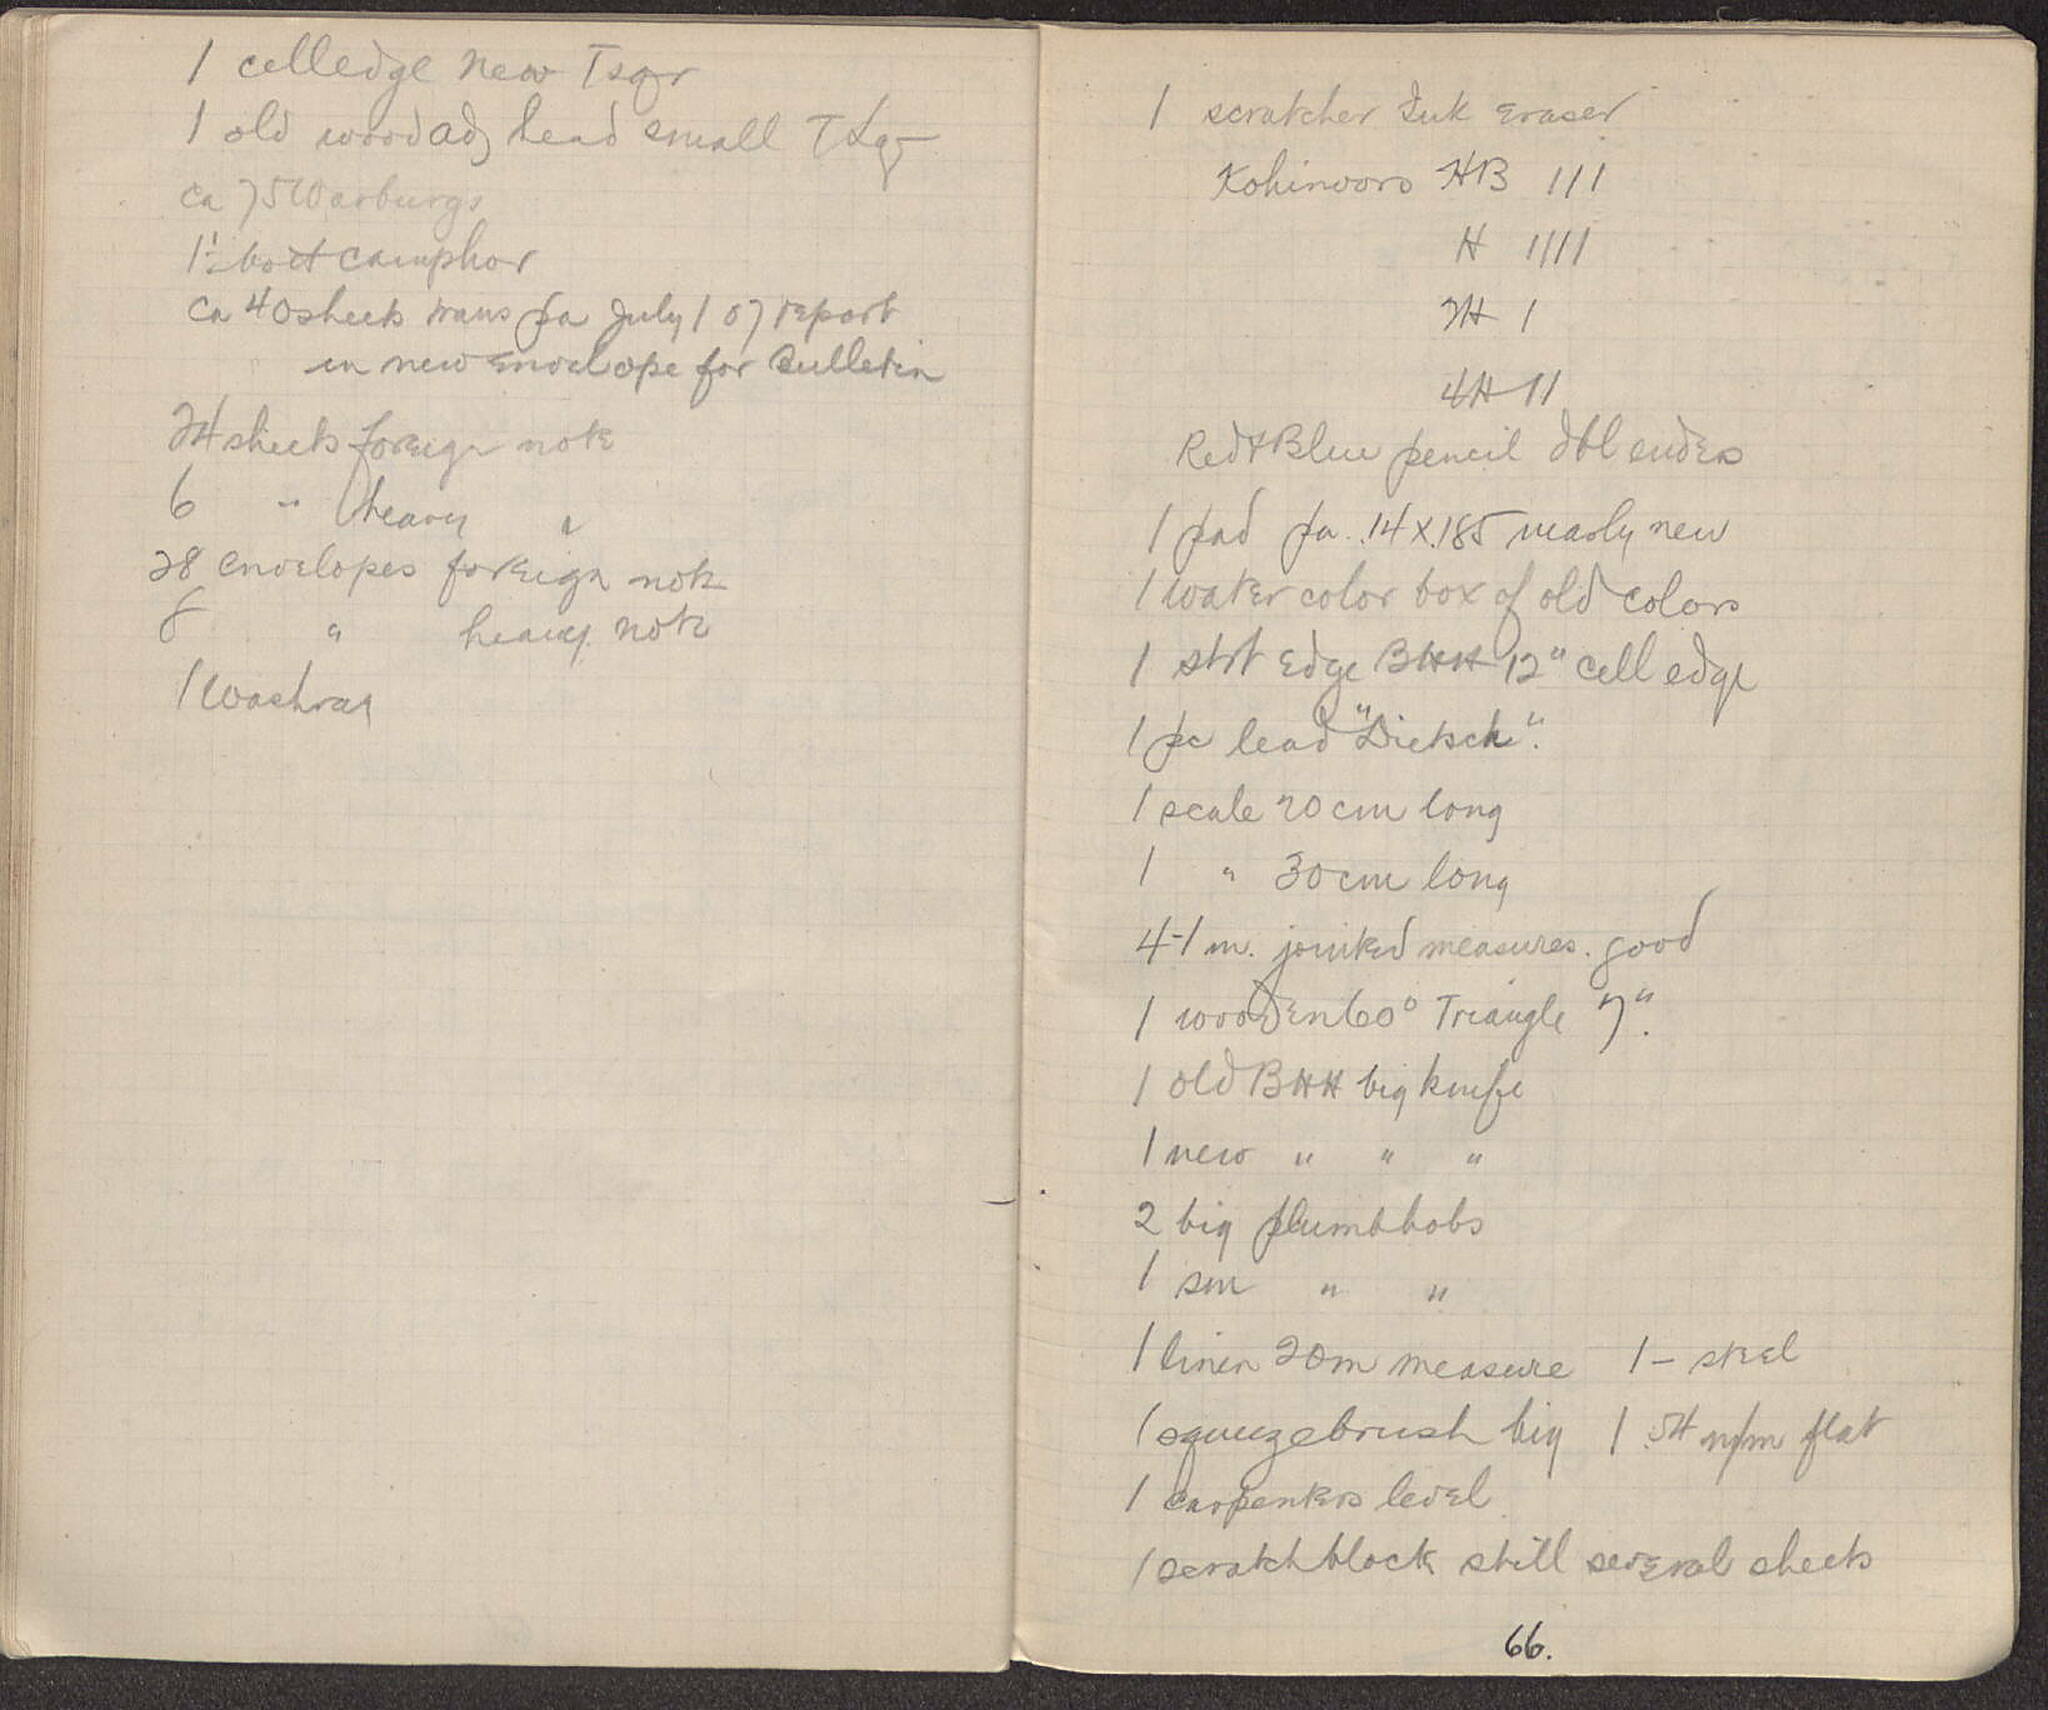 1 celledge new Tsqr
1 old wood adj head small T Sqr
ca 75 Warburgs
1 bott camphor
ca 40 sheets trans pa July 1 07 report
in new envelope for Bulletin
24 sheets foreign note
6 " heavy "
28 envelopes foreign note
8 " heavy note
1 Washrag
1 scratcher Ink Eraser
Kohinoors HB 111
H 1111
2H 1
4H 11
Red & Blue pencil dbl enders
1 pad pa. .14 X .185 nearly new
1 water color box of old colors
1 strt edge BHH 12" cell edge
1 pc lead "Dietsch".
1 scale 20 cm long
1 " 30 cm long
4-1 m. jointed measures. good
1 wooden 60° Triangle 7".
1 old BHH big knife
1 new " " "
2 big plumb bobs
1 sm " "
1 linen 20m measure 1 - steel
1 squeezebrush big 1 54 m/m flat
1 carpenters level
1 scratch block still several sheets
66.